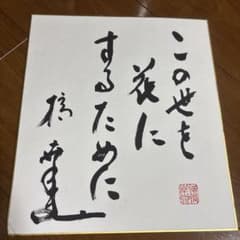 この世を
花に
するために
橋